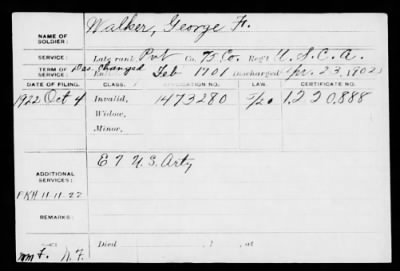 NAME OF SOLDIER: Walker, George F.
SERVICE: Late rank, Pvt Co. 73 Co. Reg't U. S. C. A.
TERM OF SERVICE: Enl. Feb 1901 Discharged Apr. 23, 1902
DATE OF FILING. CLASS. APPLICATION NO. LAW. CERTIFICATE NO.
1922 Oct 4 Invalid, 1473280 1220888
Widow,
Minor,
ADDITIONAL SERVICES: U.S. Arty
FKH 11-11-22
REMARKS:
Died , at